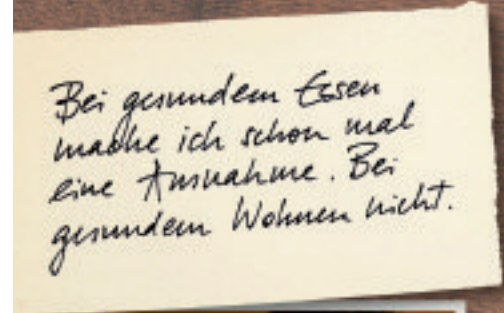 Bei gesundem Essen
mache ich schon mal
eine Ausnahme. Bei
gesundem Wohnen nicht.